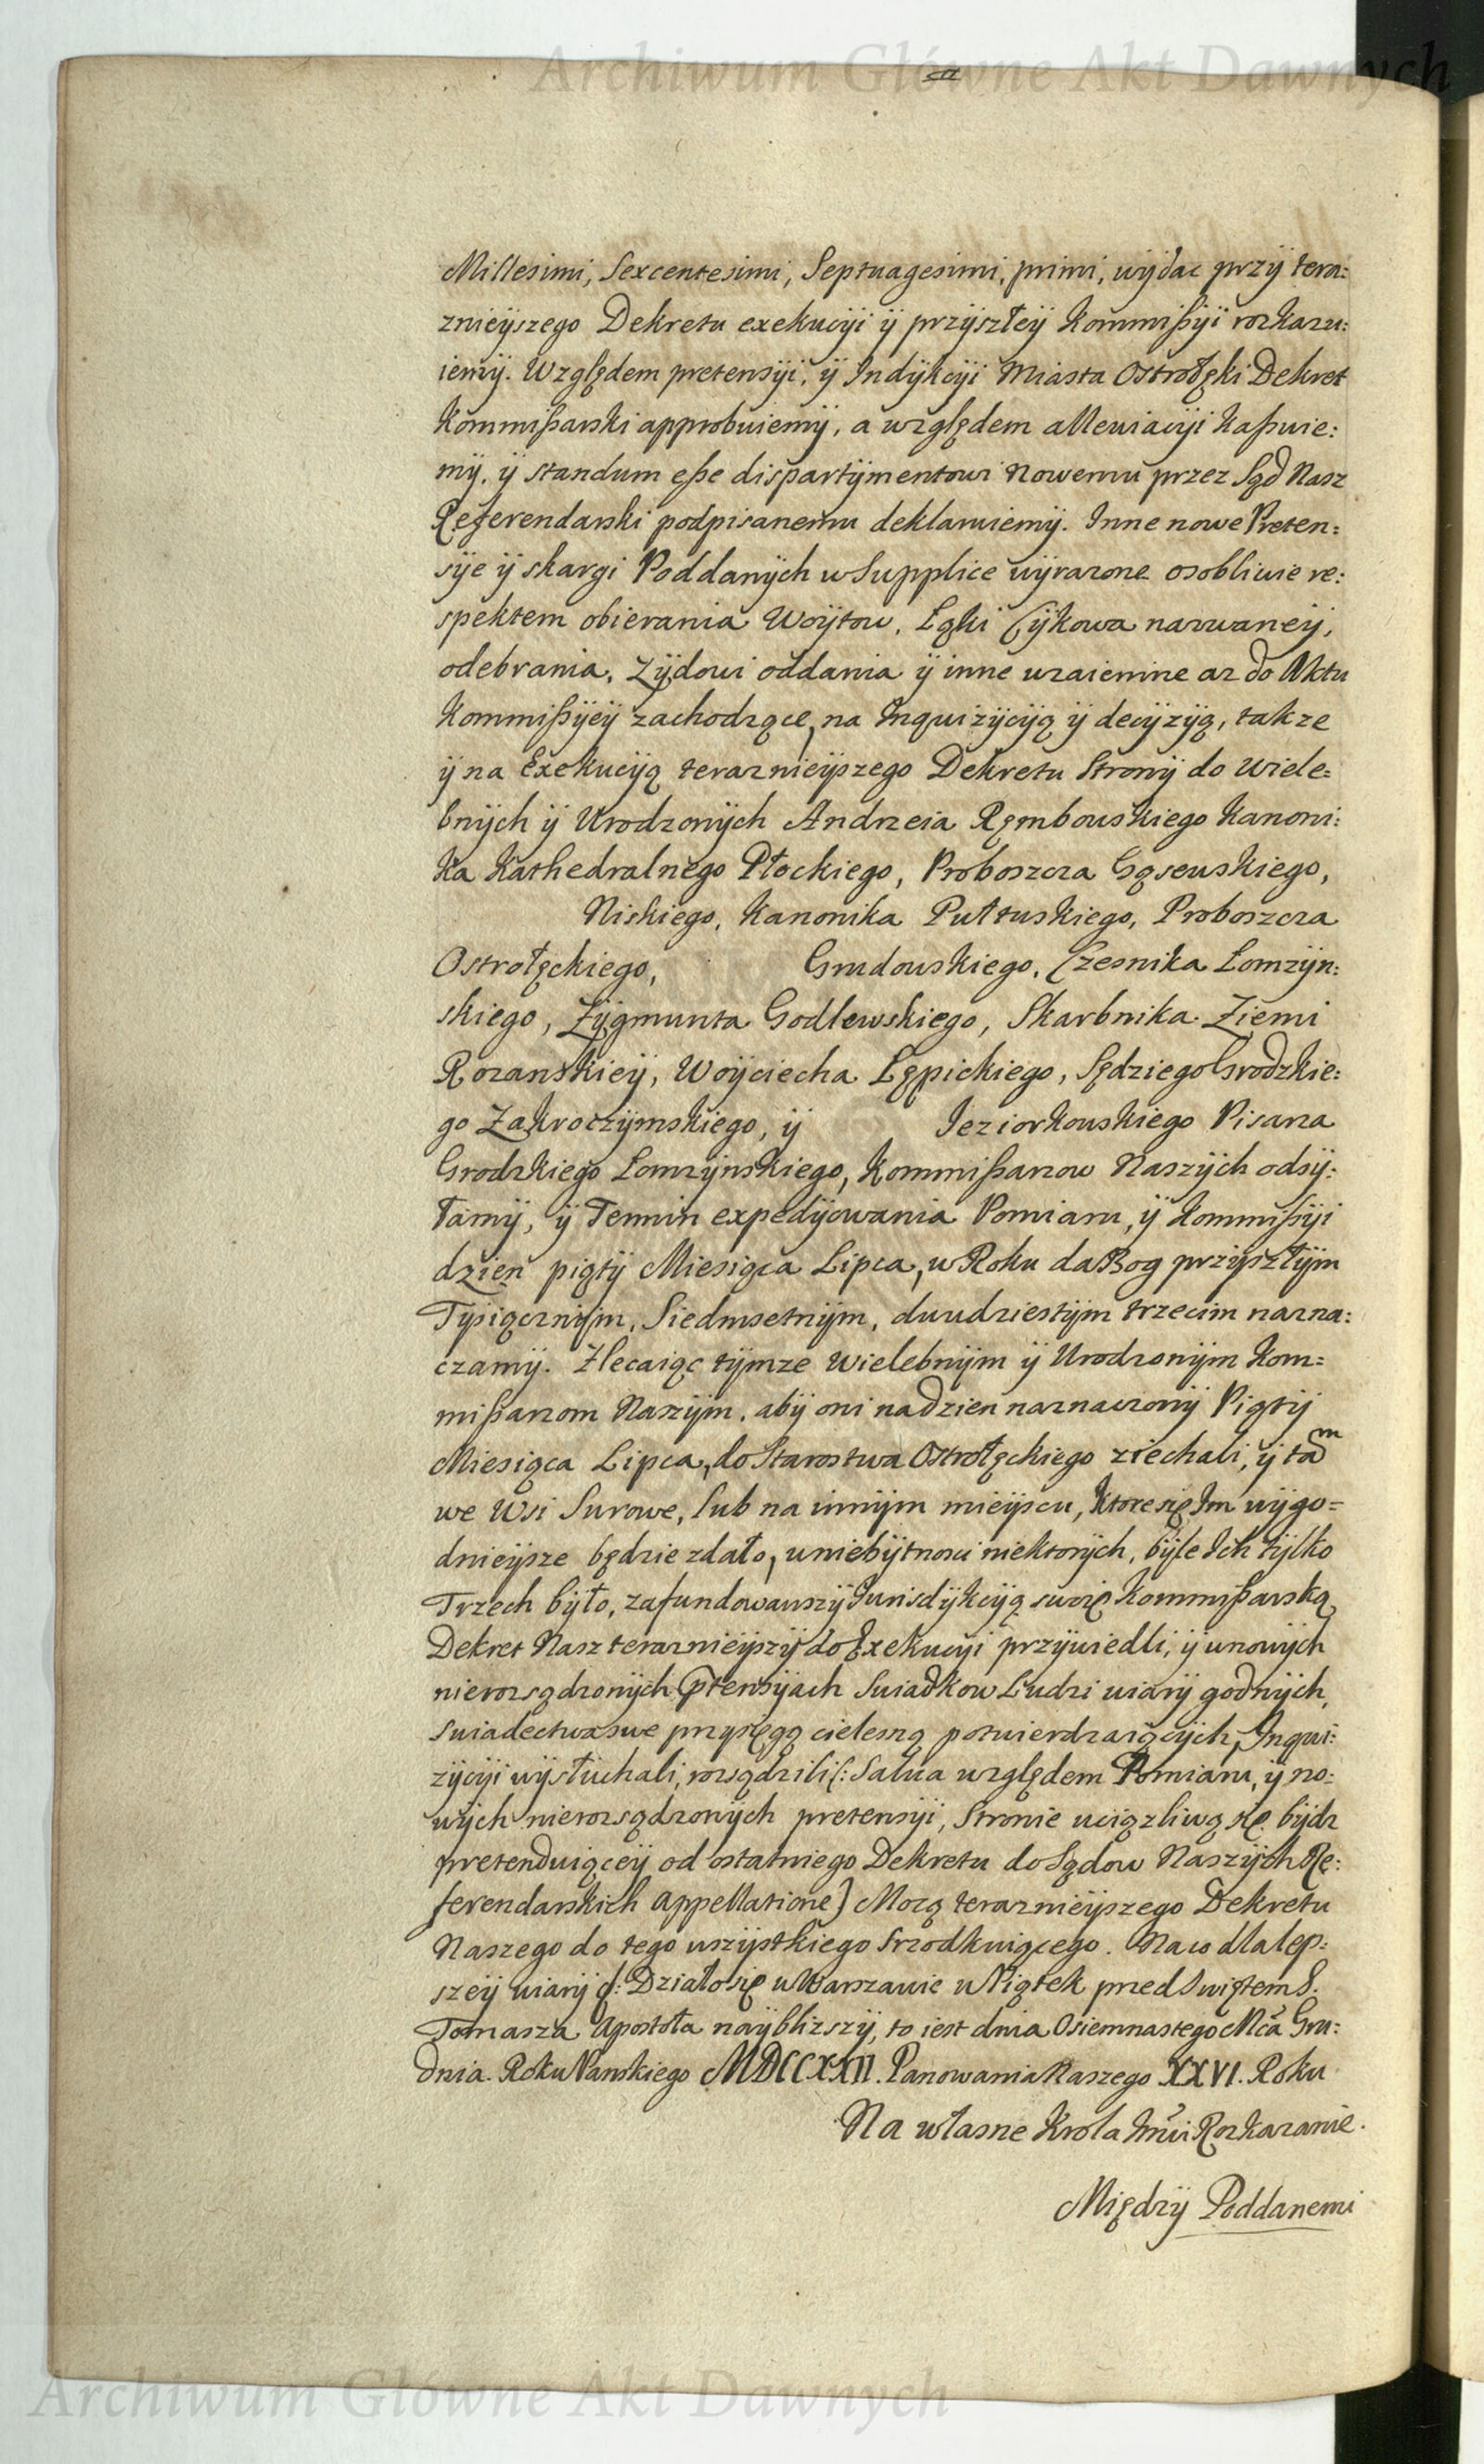 Archiwum Główne Akt Dawnych
Millesimi, Sexcentesimi, Septuagesimi, primi, wÿdac przÿ tera:
znieÿszego Dekretu exekucÿi ÿ przÿszłeÿ Kommißÿi rozkazu:
iemÿ. Względem pretensÿi, ÿ Indÿkcÿi Miasta Ostrołęki Dekret
Kommißarski approbuiemÿ, a względem allewiacÿi Kaßuie:
mÿ, ÿ standum eße dispartÿmentowi Nowemu przez Sąd Nasz
Referendarski podpisanemu deklaruiemÿ. Inne nowe Preten:
sÿe ÿ skargi Poddanÿch w Supplice wÿrazone osobliwie re:
spektem obierania Woÿtow, Łąki Cÿkowa nazwaneÿ,
odebrania, Zÿdowi oddania ÿ inne wzaiemne az do Aktu
Kommißÿeÿ zachodzące, na Inquizÿcÿą ÿ decÿzÿą, takze
ÿ na Exekucÿą teraznieÿszego Dekretu Stronÿ do Wiele:
bnÿch ÿ Urodzonÿch Andrzeia Rębowskiego Kanoni:
ka Kathedralnego Płockiego, Proboszcza Gąsewskiego,
Niskiego, Kanonika Pułtuskiego, Proboszcza
Ostrołęckiego, Grudowskiego, Czesnika Łomzÿn:
skiego, Zÿgmunta Godlewskiego, Skarbnika Ziemi
Rozanskieÿ, Woÿciecha Łępickiego, Sędziego Grodzkie:
go Zakroczÿmskiego, ÿ Ieziorkowskiego Pisarza
Grodzkiego Łomzÿnskiego, Kommißarzow Naszÿch odsÿ:
łamÿ, ÿ Termin expedÿowania Pomiaru, ÿ Kommißÿi
dzien piątÿ Miesiąca Lipca, w Roku da Bog przÿszłÿm
Tÿsiącznÿm, Siedmsetnÿm, dwudziestÿm trzecim nazna:
czamÿ. Zlecaiąc tÿmze Wielebnÿm ÿ Urodzonÿm Kom=
mißarzom Naszÿm, abÿ oni na dzien naznaczonÿ Piątÿ
Miesiąca Lipca, do Starostwa Ostrołęckiego ziechali, ÿ tam
we Wsi Surowe, lub na innÿm mieÿscu, ktore się Im wÿgo=
dnieÿsze będzie zdało, w niebÿtnosci niektorÿch, bÿle Ich tÿlko
Trzech bÿło, zafundowawszÿ Iurisdÿkcÿą swoię Kommißarską,
Dekret Nasz teraznieÿszÿ do Exekucÿi przÿwiedli, ÿ w nowÿch
nierozsądzonÿch ptensÿach Swiadkow Ludzi wiarÿ godnÿch,
Swiadectwa swe przÿsięgą cielesną potwierdzaiącÿch, Inqui:
zÿcÿi wÿsłuchali, rozsądzili (: Salva względem Pomiaru, ÿ no:
wÿch nierozsądzonÿch pretensÿi, Stronie uciązliwą się bÿdz
pretenduiąceÿ od ostatniego Dekretu do Sądow Naszÿch Re:
ferendarskich appellatione) Mocą teraznieÿszego Dekretu
Naszego do tego wszÿstkiego srzodkuiącego. Na co dla lep:
szeÿ wiarÿ &: Działo się w Warszawie w Piątek przed Swiętem S.
Tomasza Apostoła naÿblizszÿ, to iest dnia Osiemnastego Mca Gru:
dnia. Roku Panskiego MDCCXXII. Panowania Naszego XXVI. Roku
Na własne Krola Imci Rozkazanie.
Międzÿ Poddanemi
Archiwum Główne Akt Dawnych